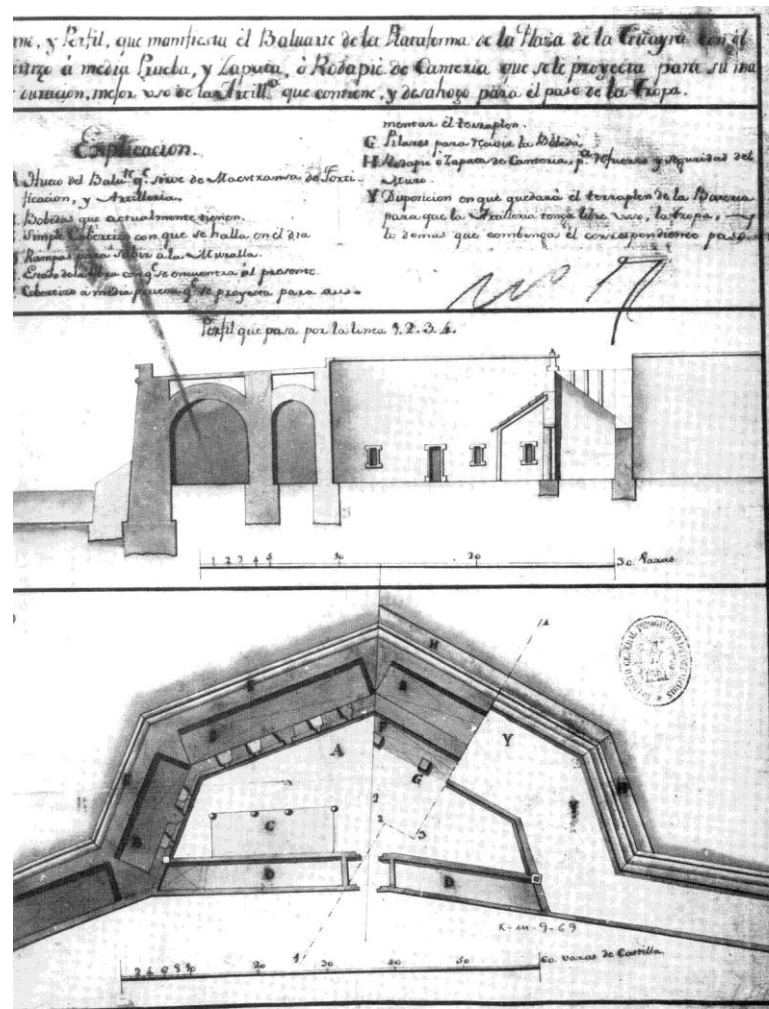 y Perfil, que manifiesta el Baluarte de la Plataforma de la Plaza de la Guayra con el
à media Prueba, y Zapata, ò Rodapie de Canteria que se le proyecta para su ma
duracion, mejor uso de la Artill.ª que contiene, y desahogo para el paso de la tropa.
Explicacion.
A Hueco del Balu.te q.e sirve de Maestranza de Forti-
ficacion, y Artilleria.
Bobedas que actualmente tienen.
Simple Cobertizo con que se halla en el dia
Rampas para subir a la Muralla.
Estado de la obra con q.e se encuentra al presente.
Cobertizo à media prueba q.e se proyecta para au-
mentar el terraplen.
G Pilares para recivir la Bobeda.
H Rodapie ò Zapata de Canteria p.ª refuerzo y seguridad del
Muro.
Y Disposicion en que quedarà el terraplen de la Bateria
para que la Artilleria tenga libre uso, la tropa, y
lo demas que combenga el correspondiente paso.
Nº 7
Perfil que pasa por la linea 1. 2. 3. 4.
A
1 2 3 4 5 10 20 30 Varas
H
B
A
F
Y
G
H
B
C
2
3
D
D
K-m-9-69
1
10 20 30 40 50 60 varas de Castilla